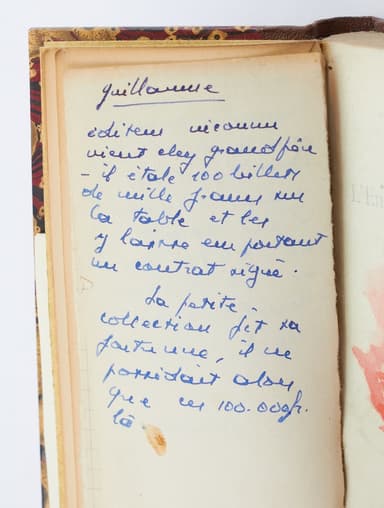 Guillaume
éditeur inconnu
vient chez grandpère
- il étale 100 billets
de mille francs sur
la table et les
y laisse emportant
un contrat signé.
La petite
collection fit sa
fortune, il ne
possédait alors
que ces 100.000 fr.
là
L'En